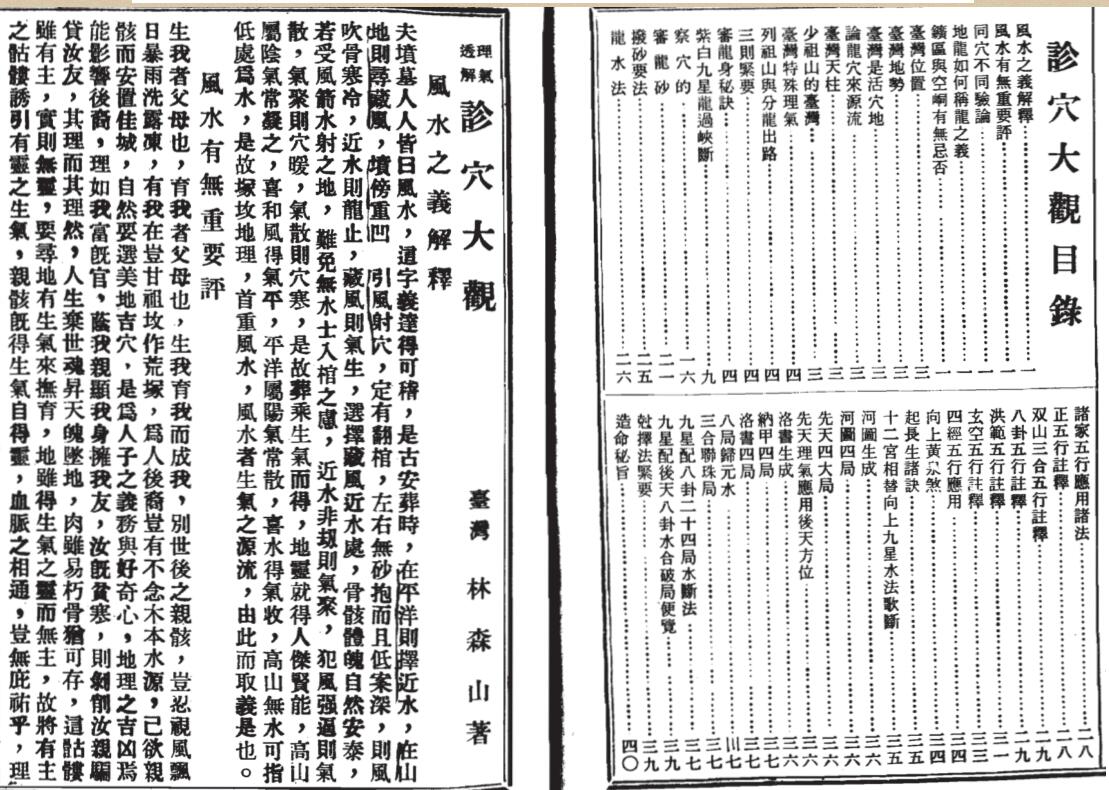 診穴大觀目錄
風水之義解釋…一
風水有無重要評…一
同穴不同驗論…一
地龍如何稱龍之義…一
鑛區與空峒有無忌否…一
臺灣位置…三
臺灣地勢…三
臺灣是活穴地…三
論龍穴來源流…三
臺灣天柱…三
少祖山的臺灣…三
臺灣特殊理氣…四
列祖山與分龍出路…四
三則緊要…四
審龍身秘訣…四
紫白九星龍過峽斷…九
察穴的…一六
審龍砂…二一
撥砂要法…二五
龍水法…二六
諸家五行應用諸法…二八
正五行註釋…二八
双山三合五行註釋…二九
八卦五行註釋…二九
洪範五行註釋…三一
玄空五行註釋…三三
四經五行應用…三四
向上黃泉煞…三四
起長生諸訣…三五
十二宮相替向上九星水法歌斷…三五
河圖生成…三六
河圖四局…三六
先天四大局…三六
先天理氣應用後天方位…三六
洛書生成…三六
納甲四局…三七
洛書四局…三七
八局歸元水…三七
三合聯珠局…三七
九星配八卦二十四局水斷法…三七
九星配後天八卦水合破局便覽…三九
尅擇法緊要…三九
造命秘旨…四〇
透理解氣 診穴大觀
臺灣 林森山著
風水之義解釋
夫墳墓人人皆曰風水，這字義達得可稽，是古安葬時，在平洋則擇近水，在山
地則尋藏風，墳傍重凹 引風射穴，定有翻棺，左右無砂抱而且低案深，則風
吹骨寒冷，近水則龍止，藏風則氣生，選擇藏風近水處，骨骸體魄自然安泰，
若受風箭水射之地，難免無水士入棺之慮，近水非刼則氣聚，犯風强逼則氣
散，氣聚則穴暖，氣散則穴寒，是故葬乘生氣而得，地靈就得人傑賢能，高山
屬陰氣常凝之，喜和風得氣平，平洋屬陽氣常散，喜水得氣收，高山無水可指
低處爲水，是故塚坟地理，首重風水，風水者生氣之源流，由此而取義是也。
風水有無重要評
生我者父母也，育我者父母也，生我育我而成我，別世後之親骸，豈忍視風飄
日暴雨洗露凍，有我在豈甘祖坟作荒塚，爲人後裔豈有不念木本水源，己欲親
骸而安置佳城，自然要選美地吉穴，是爲人子之義務與好奇心，地理之吉凶焉
能影響後裔，理如我富旣官，蔭我親顯我身擁我友，汝旣貧寒，則剝削汝親騙
貸汝友，其理而其理然，人生棄世魂昇天魄墜地，肉雖易朽骨猶可存，這骷髏
雖有主，實則無靈，要尋地有生氣來撫育，地雖得生氣之靈而無主，故將有主
之骷髏誘引有靈之生氣，親骸旣得生氣自得靈，血脈之相通，豈無庇祐乎，理